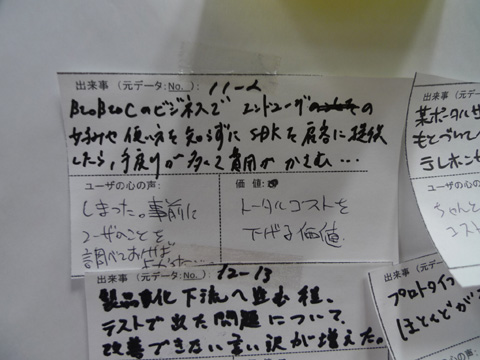 出来事（元データ:No.）: 11-2
BtoBtoCのビジネスで エンドユーザの
好みや使い方を知らずに SDKを顧客に提供
したら、手戻りが多くて費用が かさむ…
ユーザの心の声:
しまった。事前に
ユーザのことを
調べておけば
価値:
トータルコストを
下げる価値
出来事（元データ:No.）: 12-13
製品化 下流へ進む程、
テストで出た問題について、
改善できない言い訳が増えた。
出来事（元データ
某ポータルサ
もとづいてい
テレホン
ちゃんと
コスト
出来事（元デ
プロトタイプ
ほとんどが